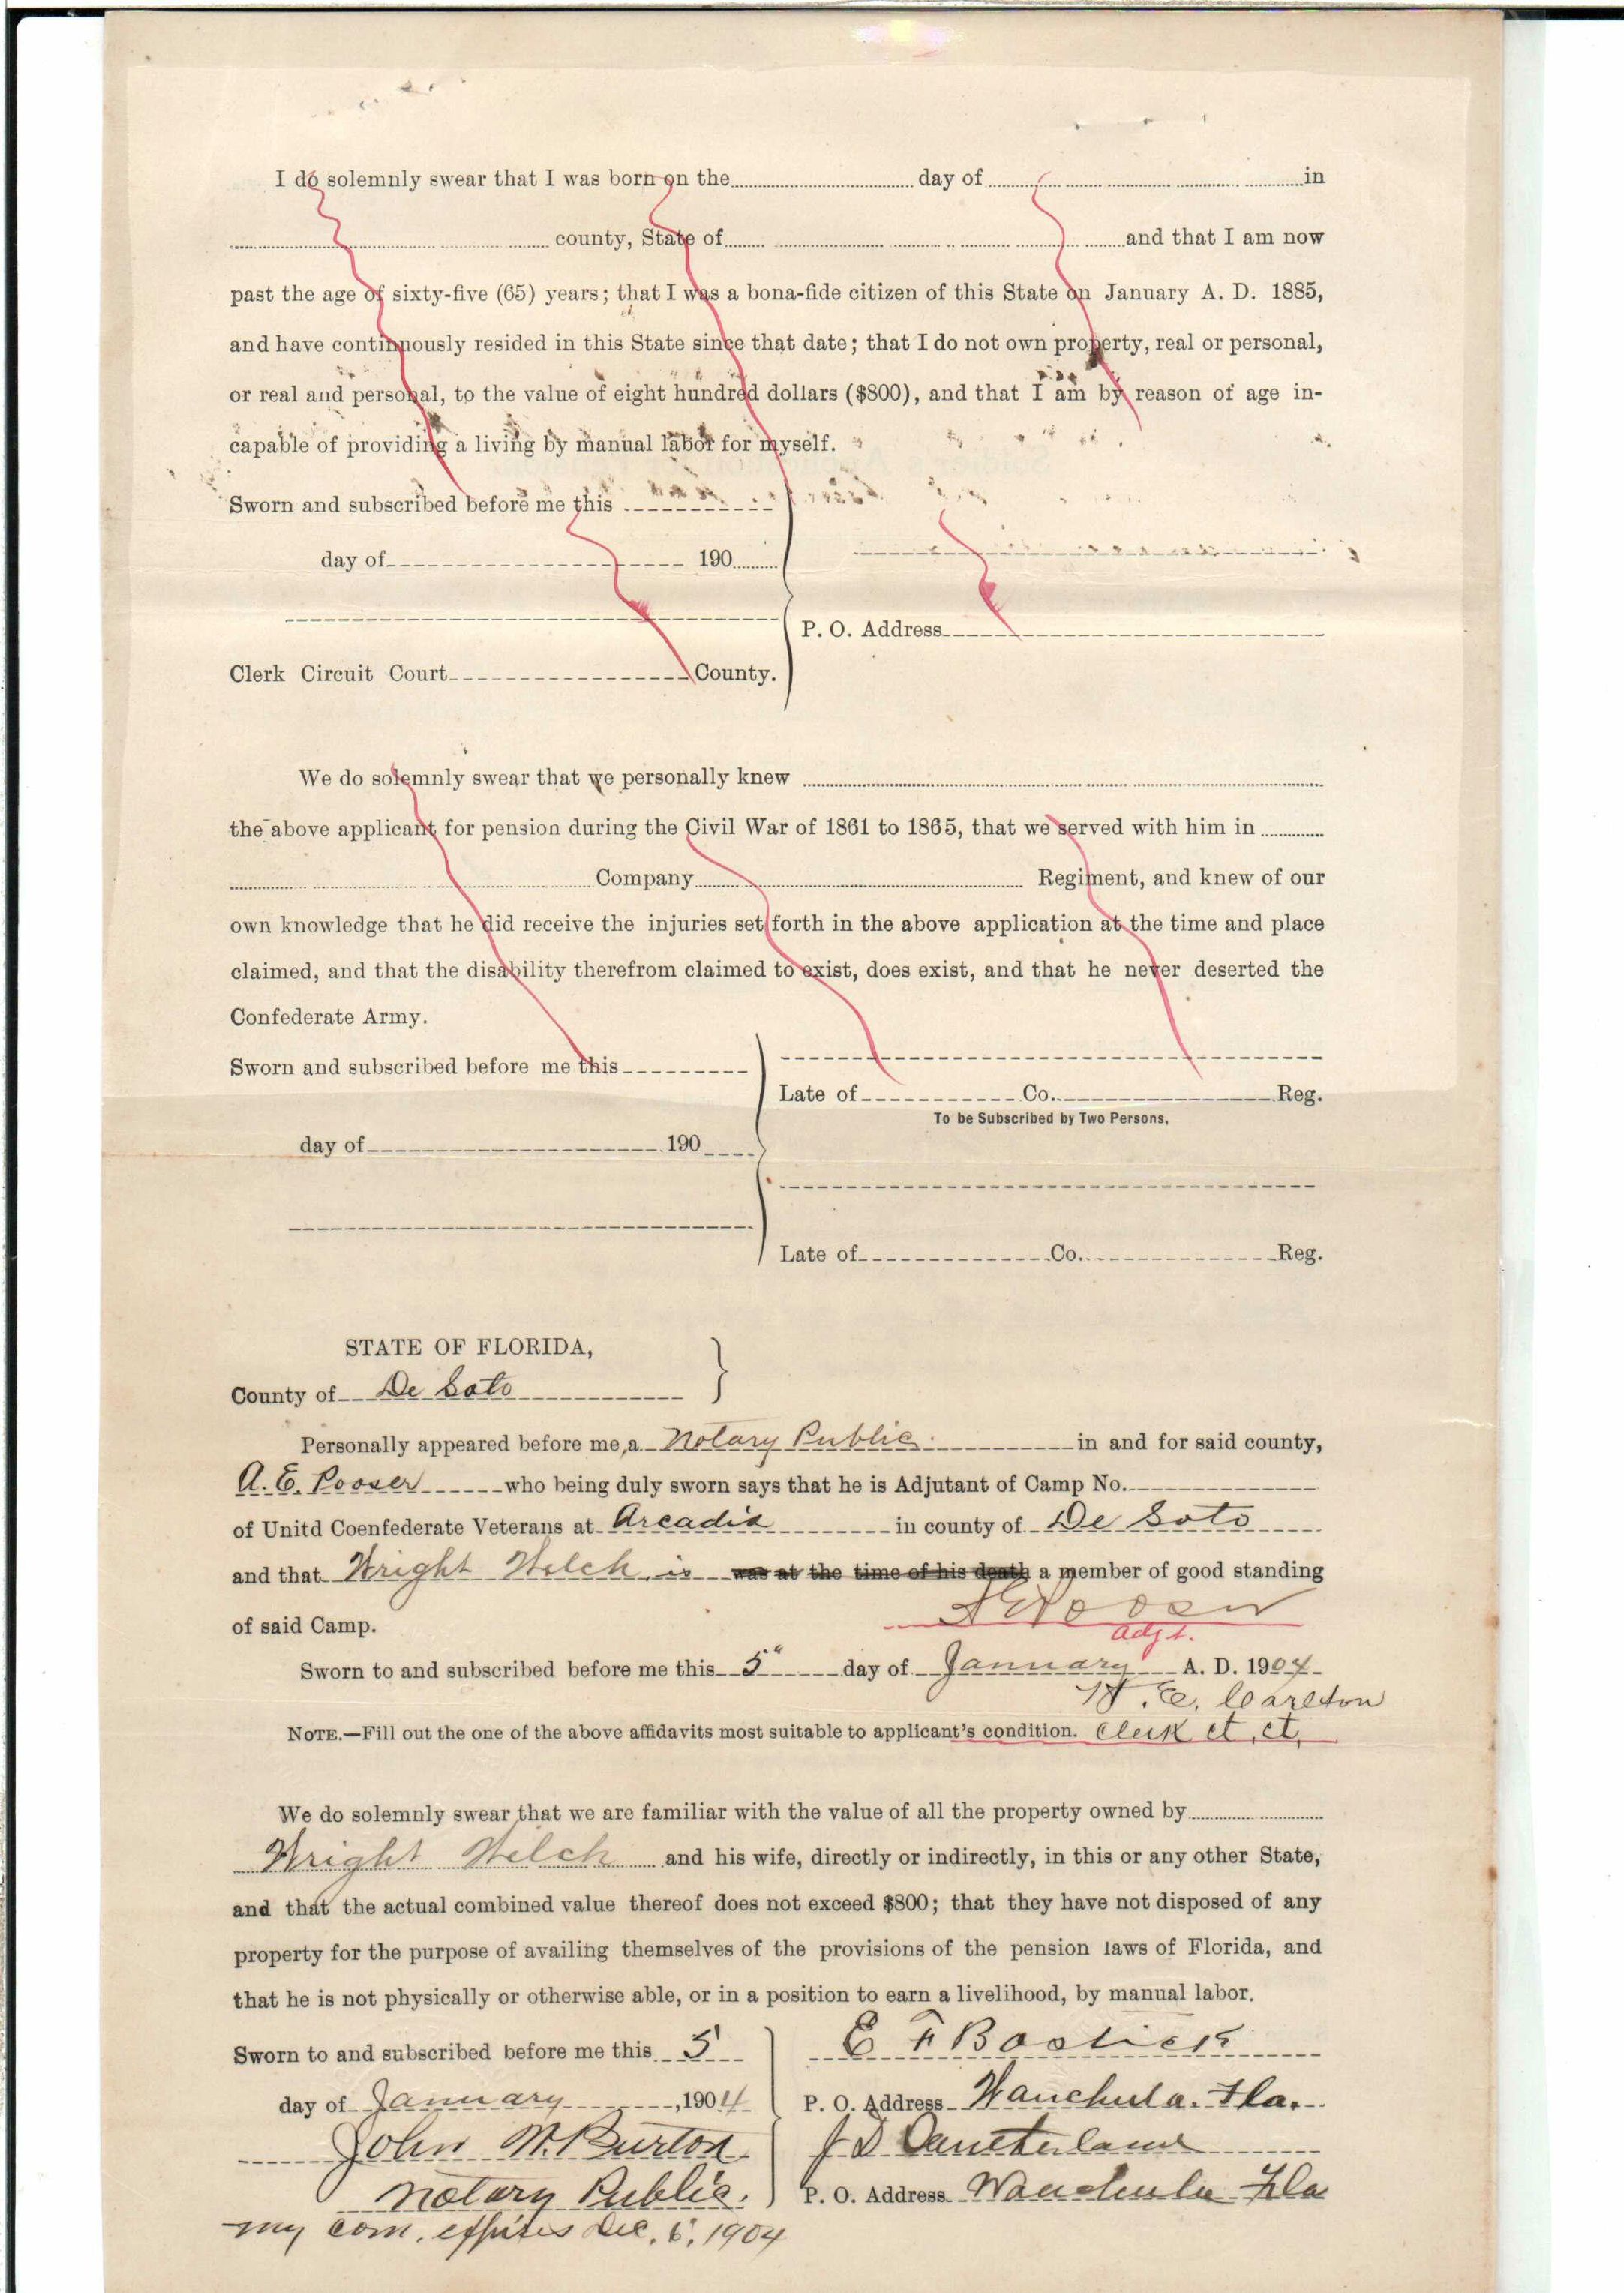 I do solemnly swear that I was born on the day of in
county, State of and that I am now
past the age of sixty-five (65) years; that I was a bona-fide citizen of this State on January A. D. 1885,
and have continuously resided in this State since that date; that I do not own property, real or personal,
or real and personal, to the value of eight hundred dollars ($800), and that I am by reason of age in-
capable of providing a living by manual labor for myself.
Sworn and subscribed before me this
day of 190
P. O. Address
Clerk Circuit Court County.
We do solemnly swear that we personally knew
the above applicant for pension during the Civil War of 1861 to 1865, that we served with him in
Company Regiment, and knew of our
own knowledge that he did receive the injuries set forth in the above application at the time and place
claimed, and that the disability therefrom claimed to exist, does exist, and that he never deserted the
Confederate Army.
Sworn and subscribed before me this
Late of Co. Reg.
To be Subscribed by Two Persons.
day of 190
Late of Co. Reg.
STATE OF FLORIDA,
County of De Soto
Personally appeared before me, a Notary Public. in and for said county,
A. E. Pooser who being duly sworn says that he is Adjutant of Camp No.
of Unitd Coenfederate Veterans at Arcadia in county of De Soto
and that Wright Welch, is was at the time of his death a member of good standing
A E Pooser
of said Camp.
Adjt.
Sworn to and subscribed before me this 5" day of January A. D. 1904
E. Carlton
NOTE.—Fill out the one of the above affidavits most suitable to applicant's condition. Clerk ct. ct.
We do solemnly swear that we are familiar with the value of all the property owned by
Wright Welch and his wife, directly or indirectly, in this or any other State,
and that the actual combined value thereof does not exceed $800; that they have not disposed of any
property for the purpose of availing themselves of the provisions of the pension laws of Florida, and
that he is not physically or otherwise able, or in a position to earn a livelihood, by manual labor.
Sworn to and subscribed before me this 5 E F Bostick
day of January, 1904 P. O. Address Wauchula. Fla.
John W. Burton J D
Notary Public. P. O. Address Wauchula Fla
my com. expires Dec. 6, 1904